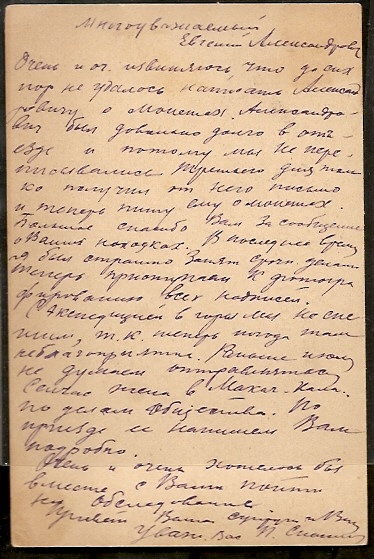 Многоуважаемый
Евгений Александрович
Очень и оч. извиняюсь, что до сих
пор не удалось написать Александ
ровичу о монетах. Александро-
вич был довольно долго в отъ-
езде и потому мы не пере-
писывались. дня толь
ко получил от него письмо
и теперь пишу ему о монетах.
Большое спасибо Вам за сообщение
о Ваших находках. В последнее время
я был страшно занят срочн. делами
теперь приступаем к фотогра
фированию всех надписей.
С экспедицией в горы мы не спе
шим, т.к. теперь погода там
неблагоприятна. Раньше июля
не думаем отправляться
Сейчас жена в Махач-Кала.
по делам Общества. По
приезде ее напишем Вам
подробно.
Очень и очень хотелось бы
вместе с Вами пойти
на обследование
Привет Вашей супруге и Вам
Уваж. Вас